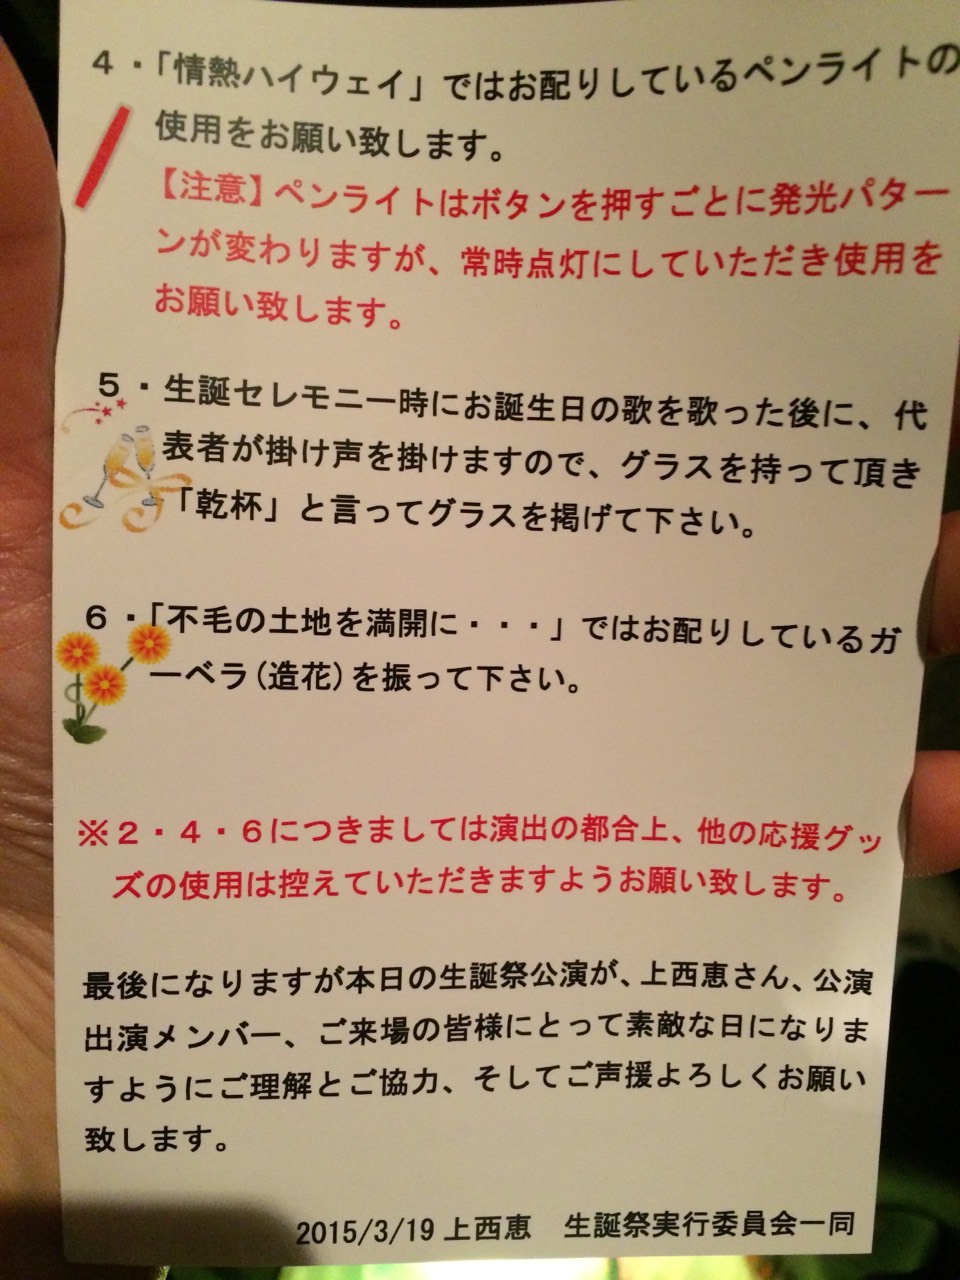 4・「情熱ハイウェイ」ではお配りしているペンライトの
使用をお願い致します。
【注意】ペンライトはボタンを押すごとに発光パター
ンが変わりますが、常時点灯にしていただき使用を
お願い致します。
5・生誕セレモニー時にお誕生日の歌を歌った後に、代
表者が掛け声を掛けますので、グラスを持って頂き
「乾杯」と言ってグラスを掲げて下さい。
6・「不毛の土地を満開に・・・」ではお配りしているガ
ーベラ(造花)を振って下さい。
※2・4・6につきましては演出の都合上、他の応援グッ
ズの使用は控えていただきますようお願い致します。
最後になりますが本日の生誕祭公演が、上西恵さん、公演
出演メンバー、ご来場の皆様にとって素敵な日になりま
すようにご理解とご協力、そしてご声援よろしくお願い
致します。
2015/3/19 上西恵 生誕祭実行委員会一同